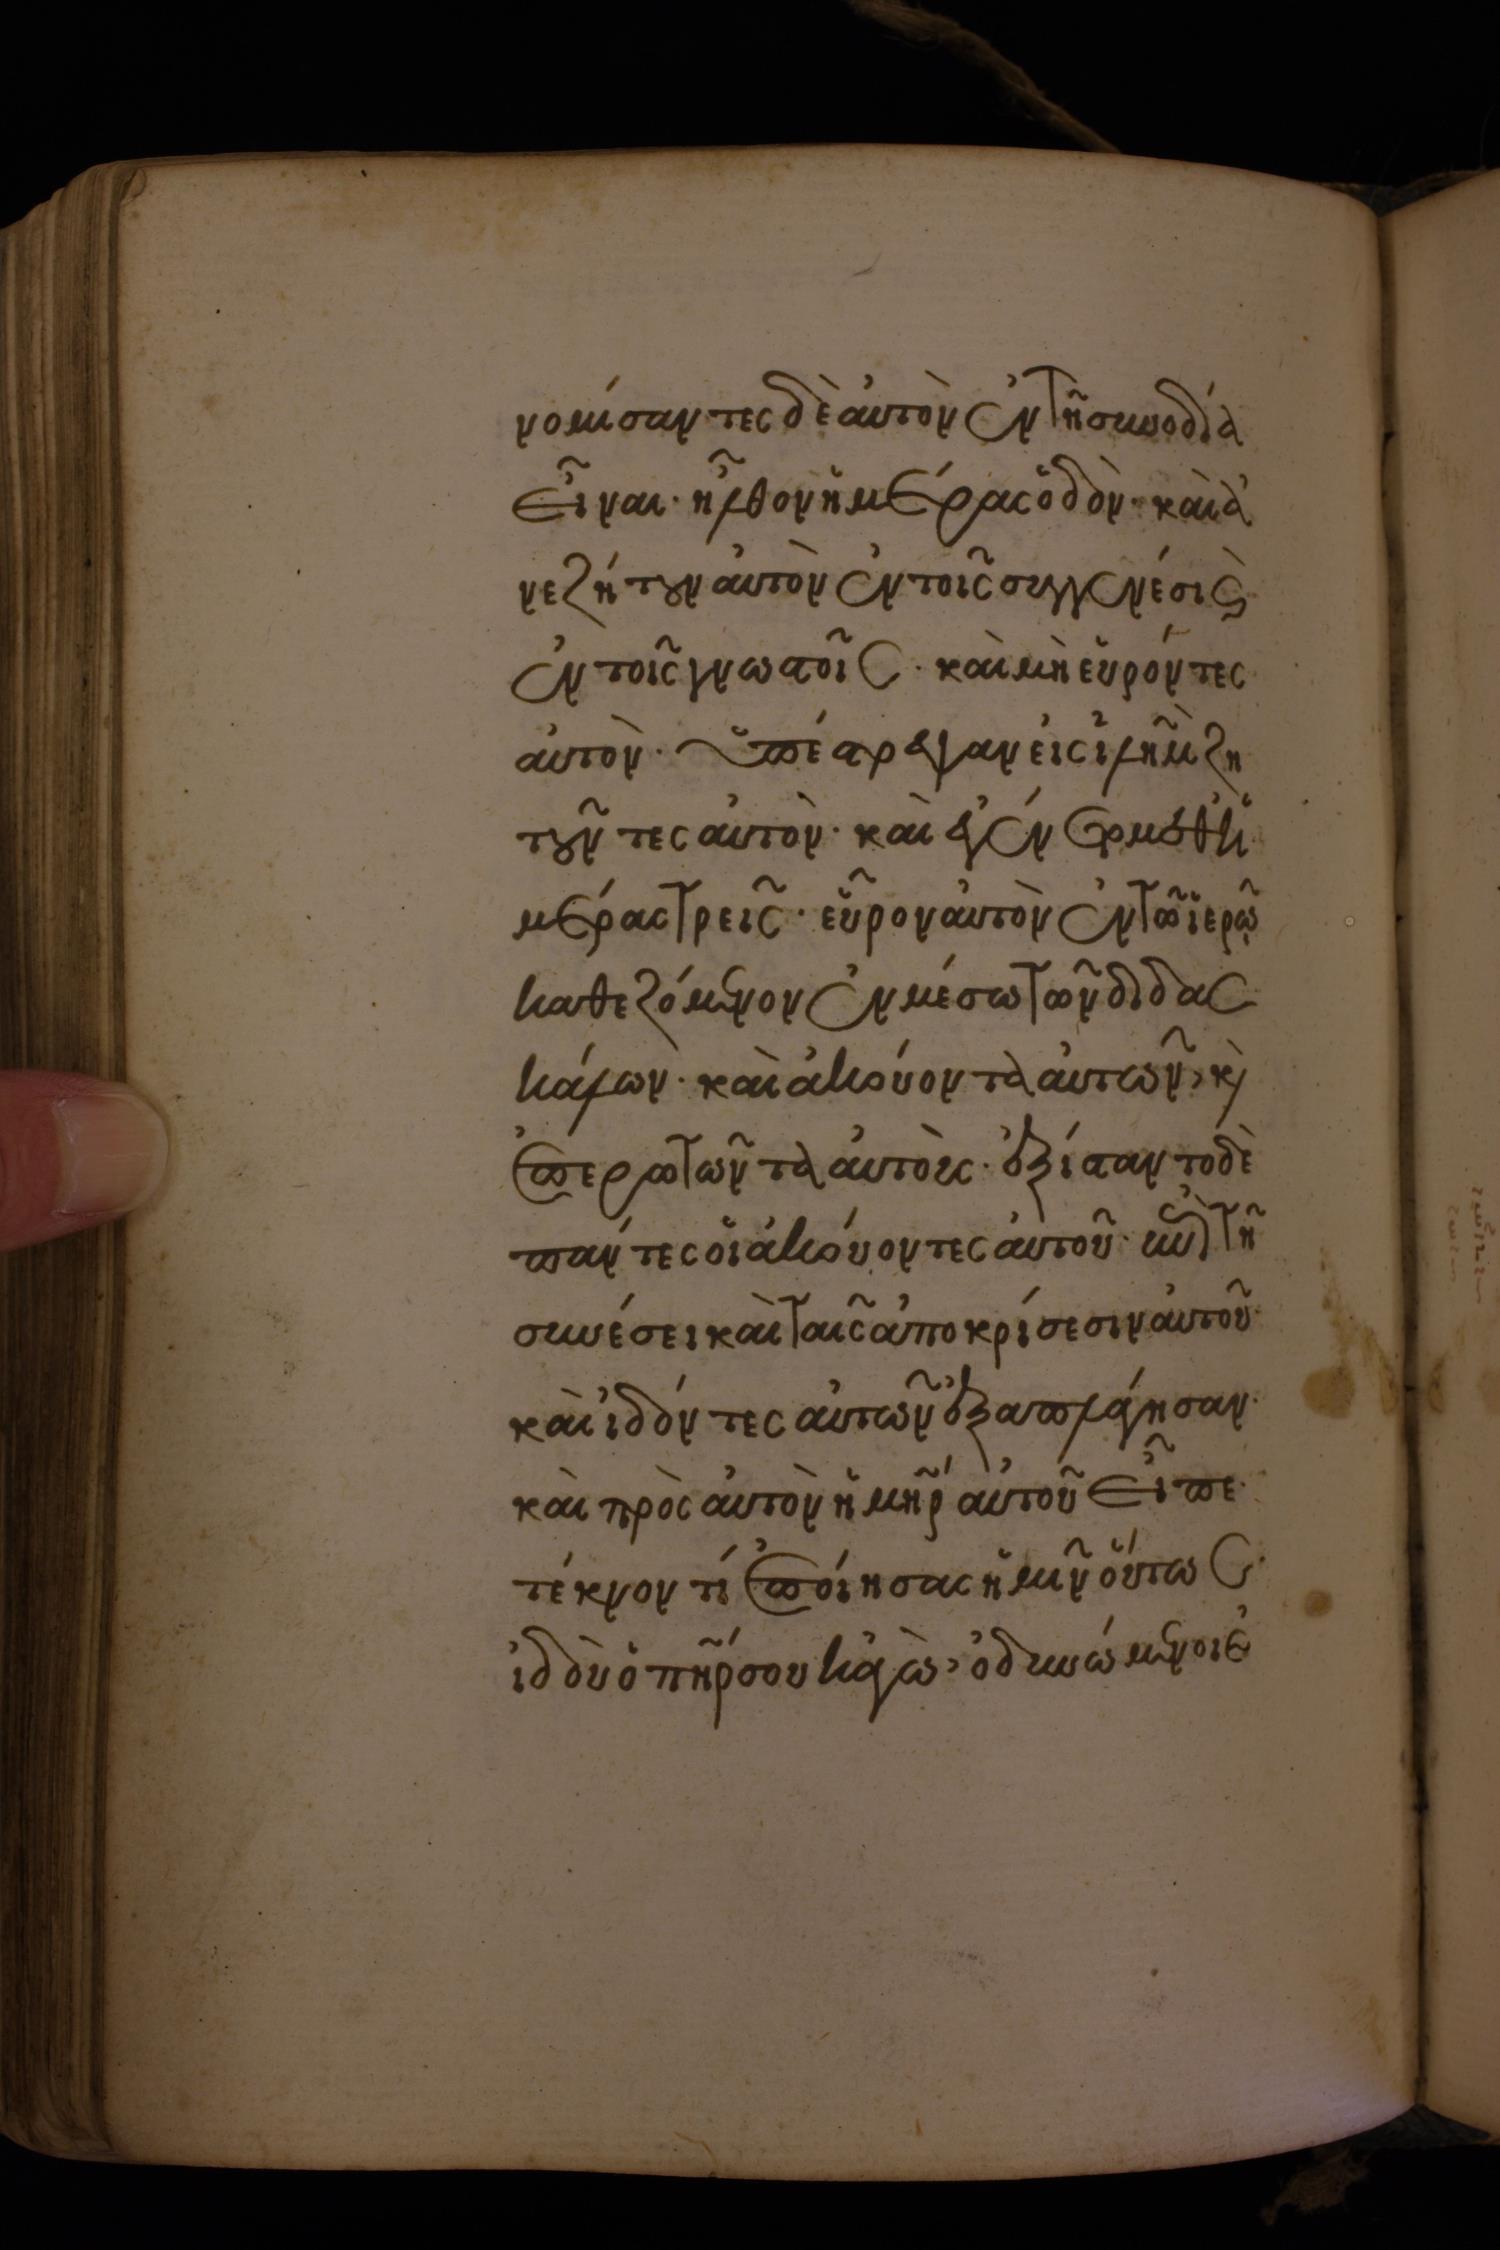 νομίσαντες δὲ αὐτὸν ἐν τῆ συνοδία
εἶναι· ἦλθον ἡμέρας ὁδὸν· καὶ ἀ
νεζήτουν αὐτὸν ἐν τοῖς συγγενέσι κ̀
ἐν τοῖς γνωστοῖς· καὶ μὴ εὑρόντες
αὐτὸν· ὑπέστρεψαν εἰς ἱλῆμ ζη
τοῦντες αὐτὸν· καὶ ἐγένετο μεθ' ἡ
μέρας τρεῖς· εὗρον αὐτὸν ἐν τῶ ἱερῶ
καθεζόμενον ἐν μέσω τῶν διδασ
κάλων· καὶ ἀκούοντα αὐτῶν, κ̀
ἐπερωτῶντα αὐτοὺς· ἐξίσταντο δὲ
πάντες οἱ ἀκούοντες αὐτοῦ· ἐπὶ τῆ
συνέσει καὶ ταῖς ἀποκρίσεσιν αὐτοῦ·
καὶ ἰδόντες αὐτῶν ἐξεπλάγησαν·
καὶ πρὸς αὐτὸν ἡ μῆρ αὐτοῦ εἶπε·
τέκνον τί ἐποίησας ἡμῖν οὕτως·
ἰδοὺ ὁ πῆρ σου κἀγὼ, ὀδυνώμενοι ἐ